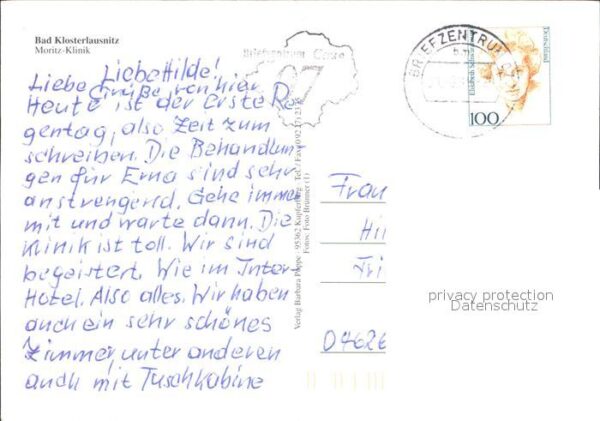 Bad Klosterlausnitz
Moritz-Klinik
Liebe Hilde!
Liebe Grüße von hier.
Heute ist der erste Re
gentag, also Zeit zum
schreiben. Die Behandlun
gen für Erna sind sehr
anstrengend. Gehe immer
mit und warte dann. Die
Klinik ist toll. Wir sind
begeistert. Wie im Inter-
Hotel. Also alles. Wir haben
auch ein sehr schönes
Zimmer, unter anderen
auch mit Tuschkabine
Verlag Barbara Pieppe · 95362 Kupferberg · Tel./Fax 0 92 27/
Fotos: Foto Brunner (1)
Briefzentrum
07
BRIEFZENTRUM
Deutschland
Elisabeth
100
Frau
Hil
Tri
04626
privacy protection
Datenschutz